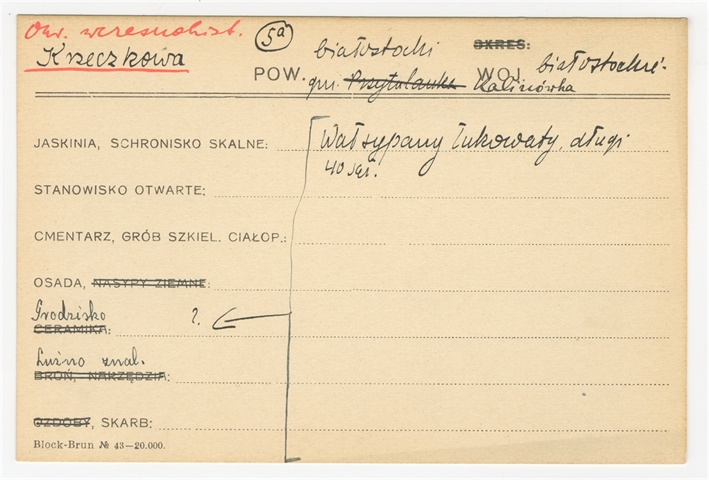 Okr. wczesnohist. 5a białostocki OKRES:
Krzeczkowa POW. WOJ. białostockie
gm. Przytulanka Kalinówka
JASKINIA, SCHRONISKO SKALNE: Wał sypany łukowaty, długi
STANOWISKO OTWARTE: 40
CMENTARZ, GRÓB SZKIEL. CIAŁOP.:
OSADA, NASYPY ZIEMNE:
Grodzisko ?
CERAMIKA:
Luźno znal.
BROŃ, NARZĘDZIA:
OZDOBY, SKARB:
Block-Brun № 43—20.000.